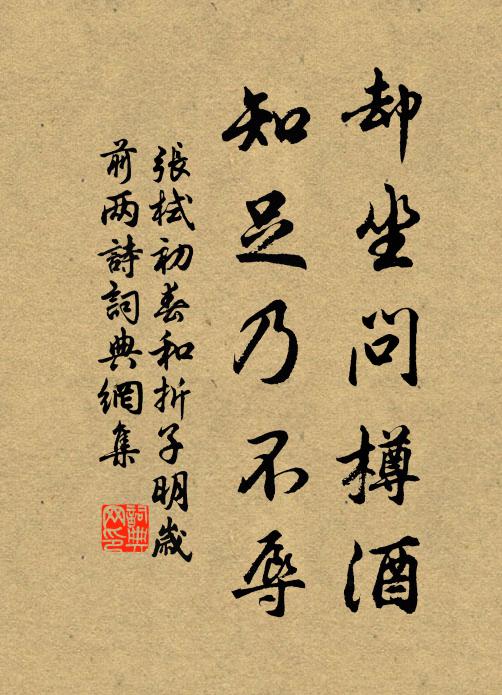 却坐問樽酒
知足乃不辱
張栻初春和折子明歲
前两詩詞典網集
詞典網印